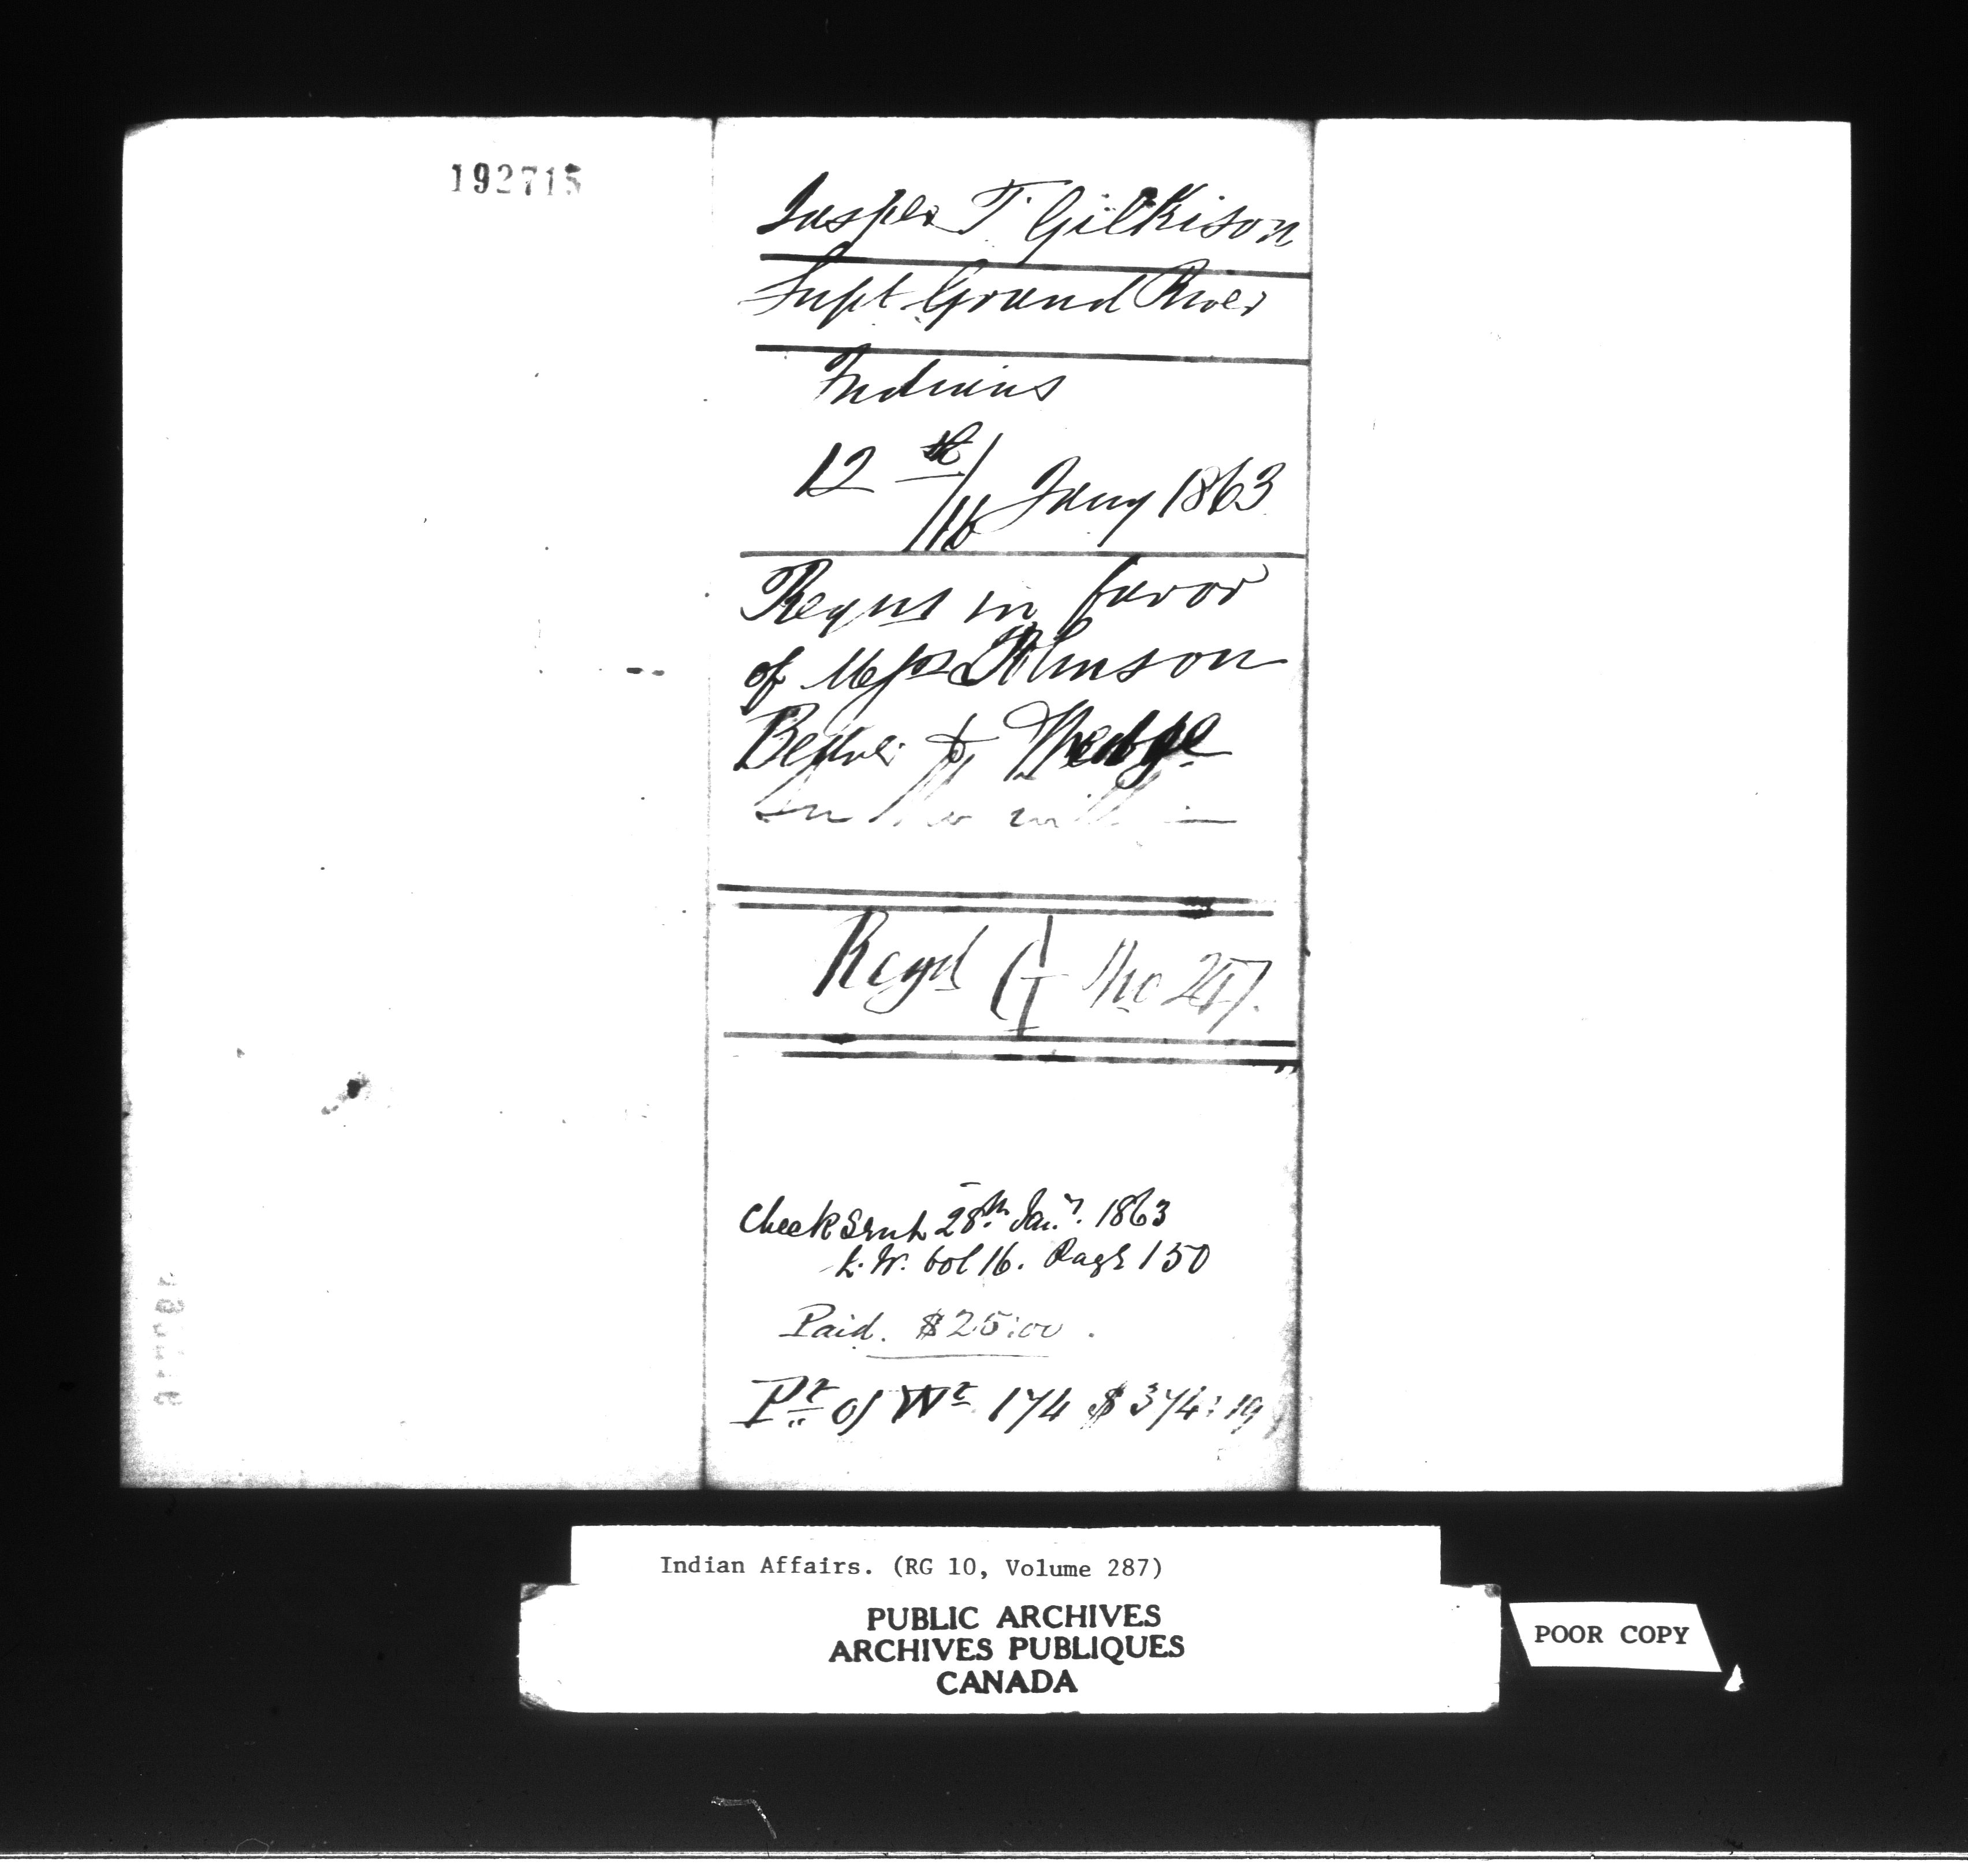 192715
Jasper T. Gilkison
Supt Grand River
Indians
12th/16 Jany 1863
Requs in favor
of Messrs Johnson
&
Regd G No
Check Sent 28th Jany. 1863
L. W. vol 16. Page 150
Paid. $25:00.
Pt of Wt 174 $374:19
Indian Affairs. (RG 10, Volume 287)
PUBLIC ARCHIVES
ARCHIVES PUBLIQUES
CANADA
POOR COPY